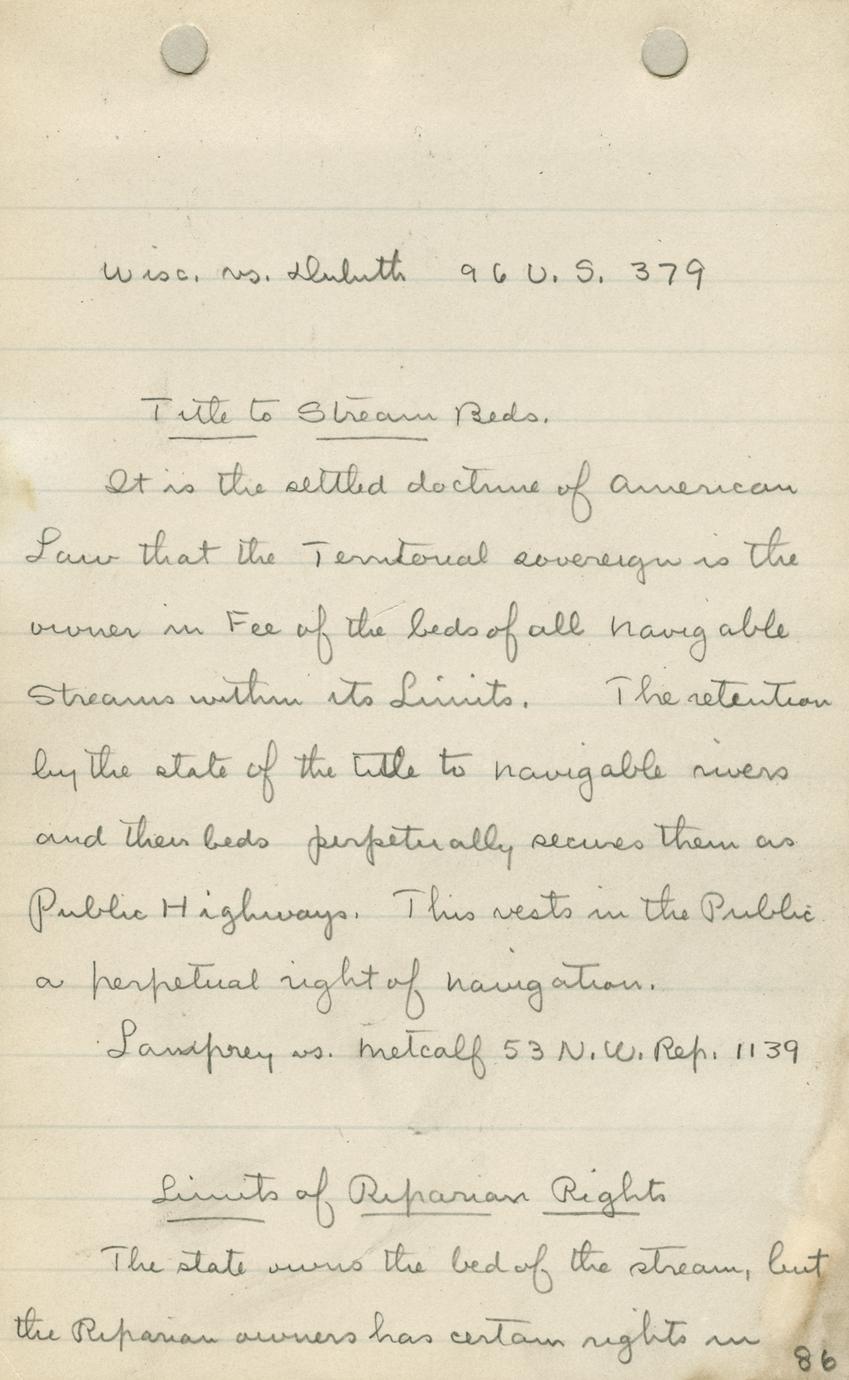 Wisc. vs. Duluth 96 U.S. 379
Title to Stream Beds.
It is the settled doctrine of American
Law that the Territorial sovereign is the
owner in Fee of the beds of all navigable
Streams within its Limits. The retention
by the state of the title to navigable rivers
and their beds perpetually secures them as
Public Highways. This vests in the Public
a perpetual right of navigation.
Lamprey vs. Metcalf 53 N.W. Rep. 1139
Limits of Riparian Rights
The state owns the bed of the stream, but
the Riparian owners has certain rights in
86